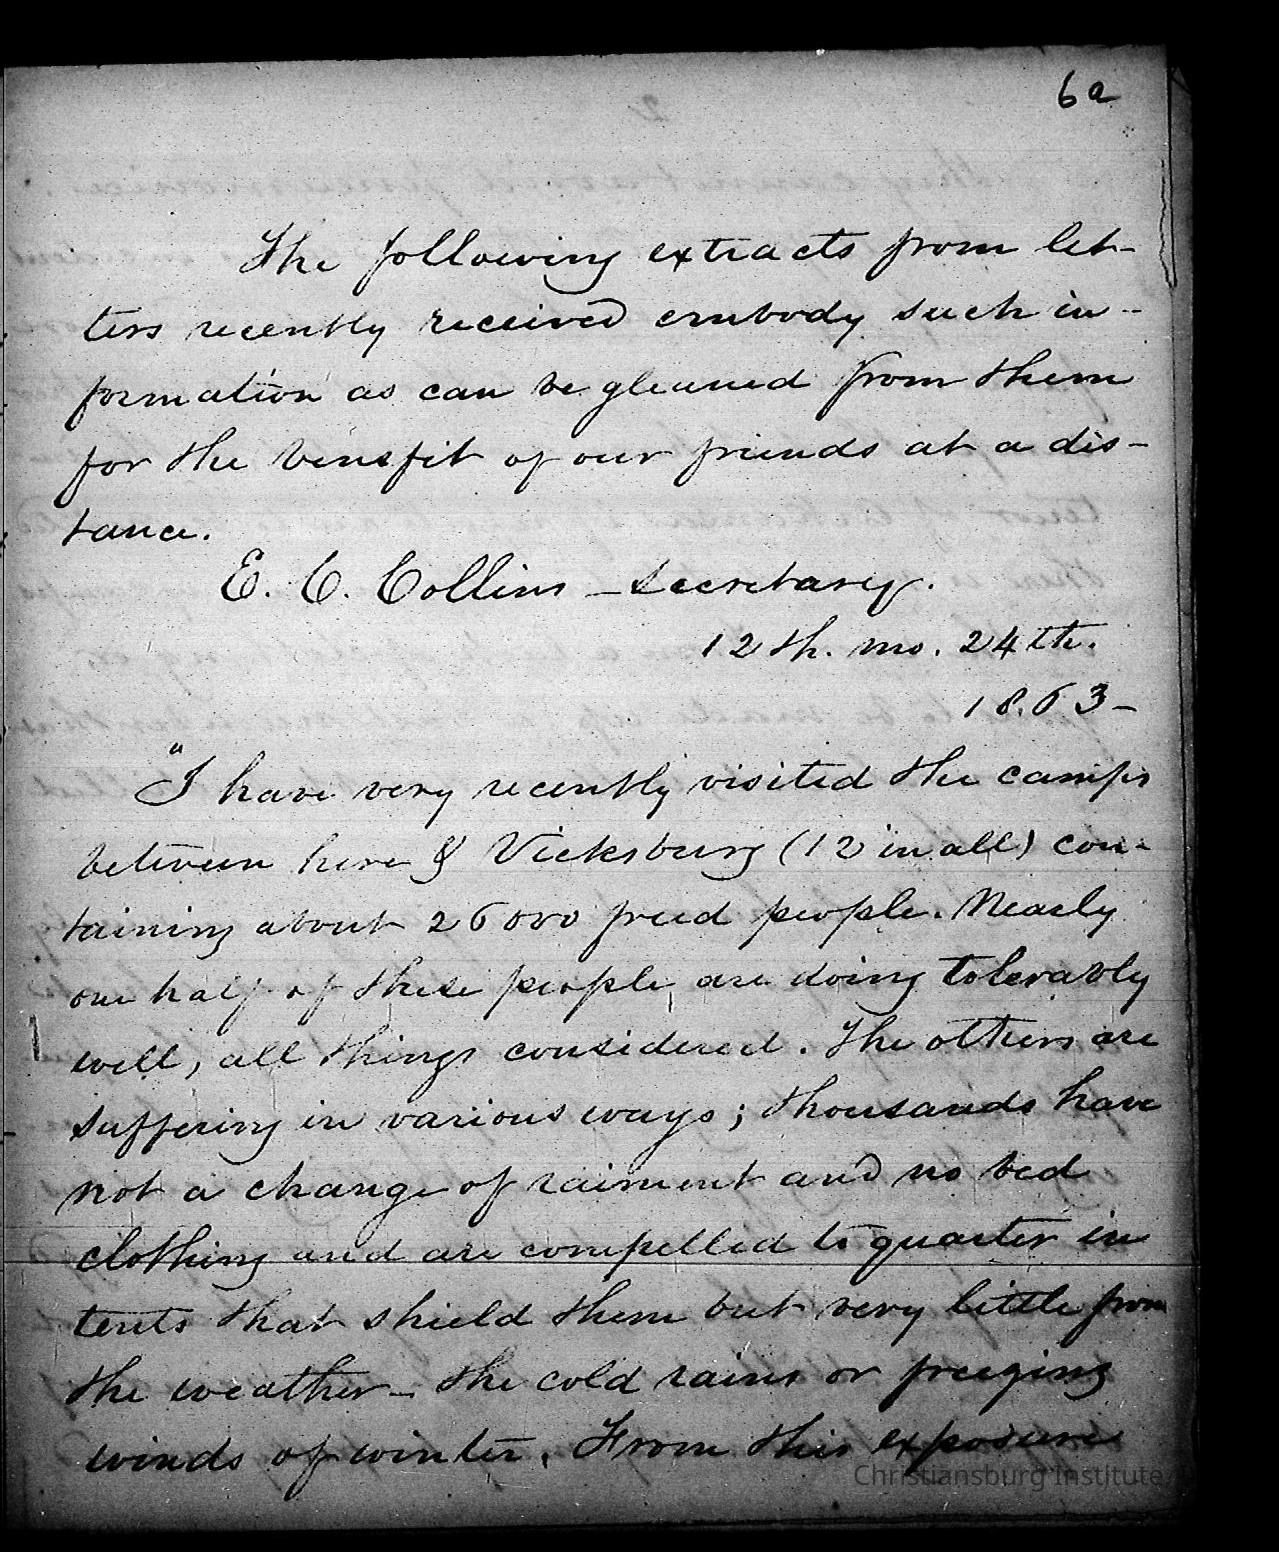 6a
The following extracts from let-
ters recently received embody such in-
formation as can be gleaned from them
for the benefit of our friends at a dis-
tance.
E. C. Collins - Secretary.
12th. mo. 24th.
1863-
"I have very recently visited the camps
between here & Vicksburg (12 in all) con-
taining about 26000 freed people. Nearly
one half of these people, are doing tolerably
well, all things considered. The others are
suffering in various ways; thousands have
not a change of raiment and no bed
clothing and are compelled to quarter in
tents that shield them but very little from
the weather - the cold rains or freezing
winds of winter. From this exposure
Christiansburg Institute